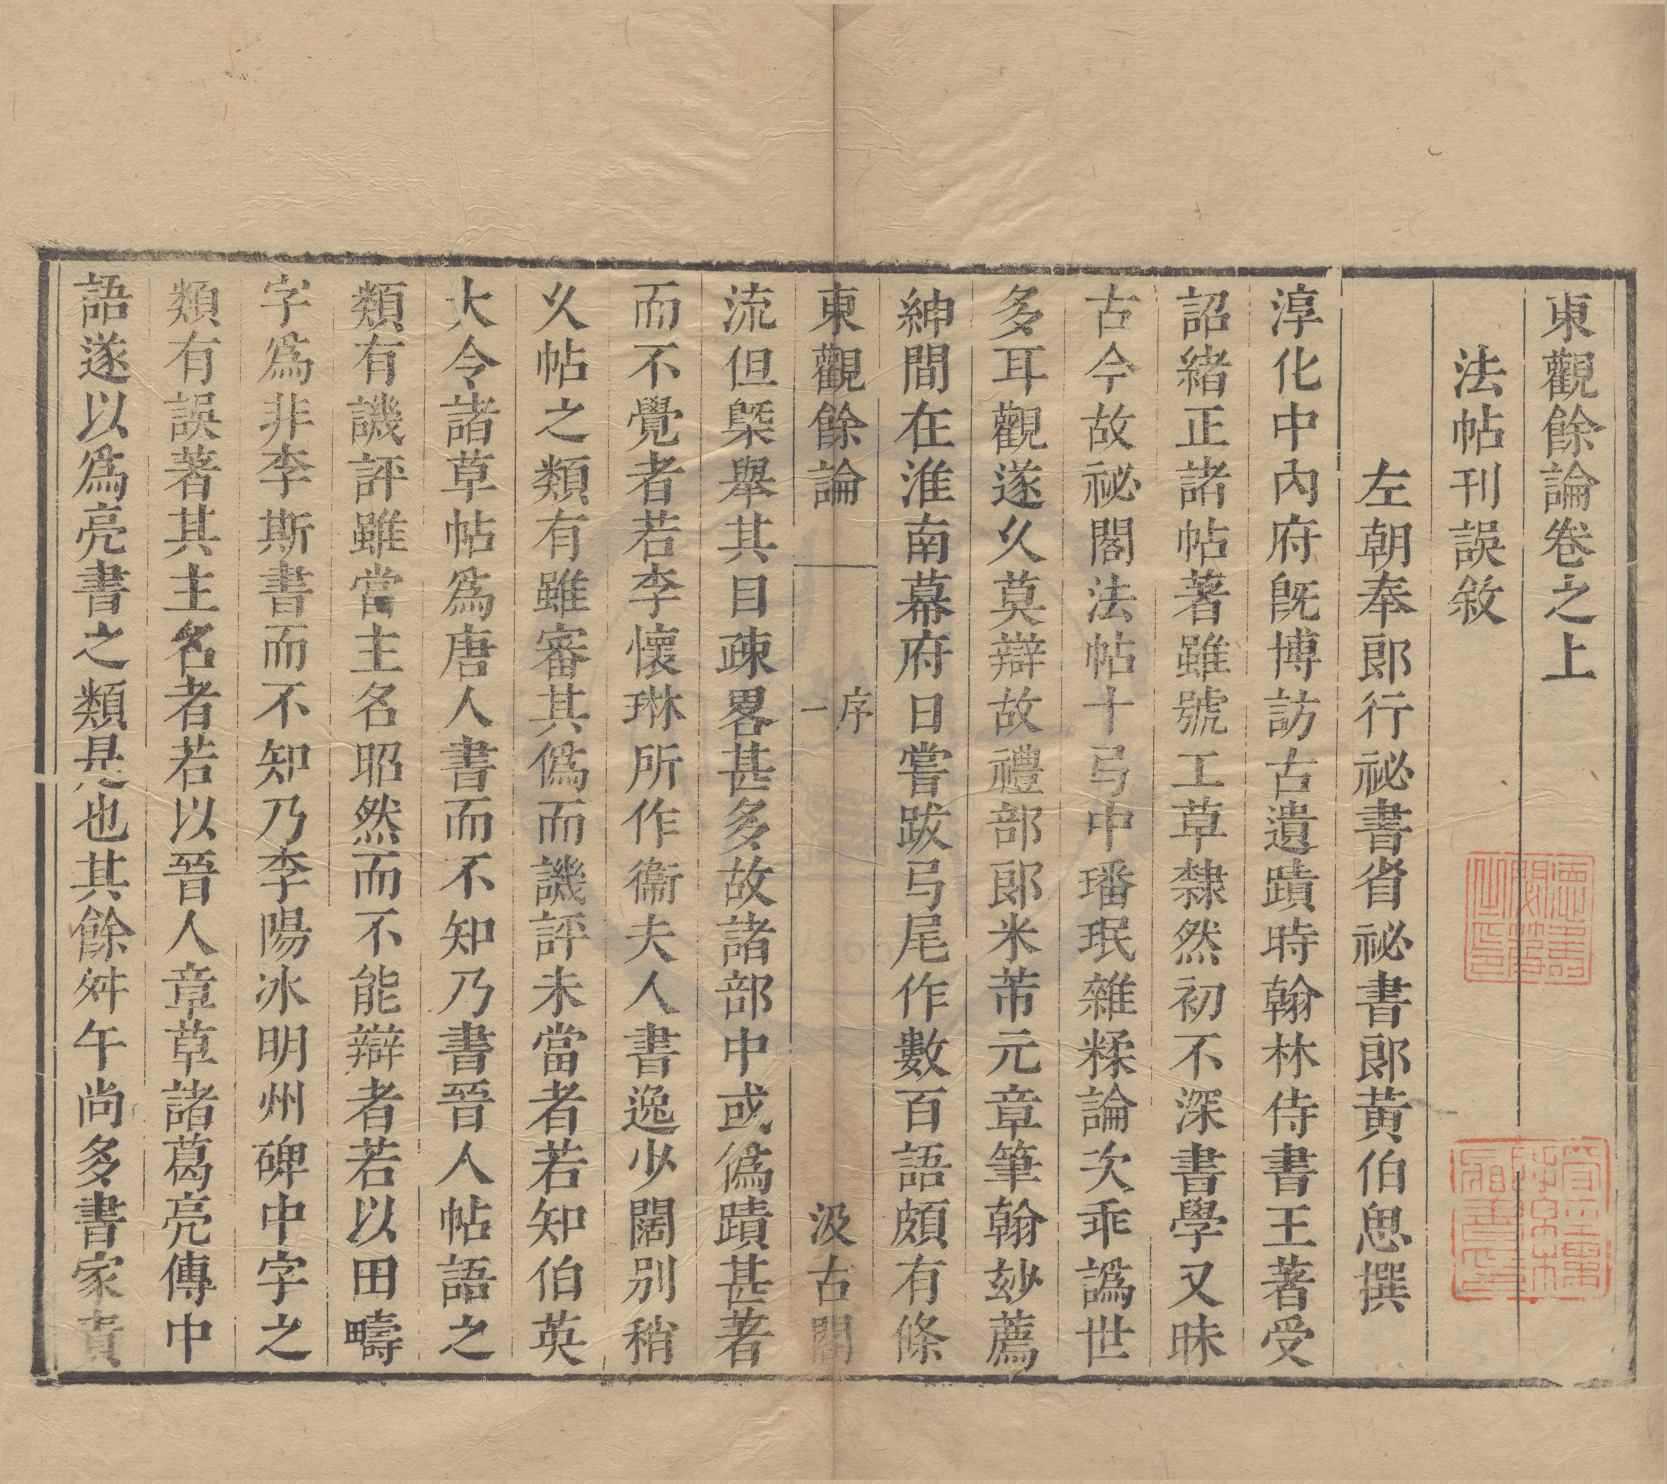 東觀餘論卷之上
法帖刊誤敘
左朝奉郎行祕書省祕書郎黃伯思撰
淳化中內府旣博訪古遺蹟時翰林侍書王著受
詔緒正諸帖著雖號工草隸然初不深書學又昧
古今故祕閣法帖十弓中璠珉雜糅論次乖譌世
多耳觀遂乆莫辯故禮部郎米芾元章筆翰玅薦
紳間在淮南幕府日嘗跋弓尾作數百語頗有條
東觀餘論
序
一
汲古閣
流但槩舉其目疎畧甚多故諸部中或僞蹟甚著
而不覺者若李懷琳所作衞夫人書逸少闊別稍
乆帖之類有雖審其僞而譏評未當者若知伯英
大令諸草帖爲唐人書而不知乃書晉人帖語之
類有譏評雖當主名昭然而不能辯者若以田疇
字爲非李斯書而不知乃李陽冰明州碑中字之
類有誤著其主名者若以晉人章草諸葛亮傳中
語遂以爲亮書之類是也其餘舛午尚多書家責